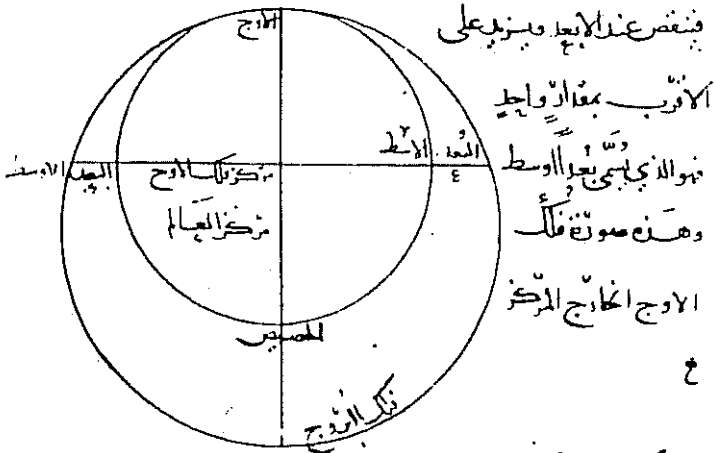 فينقص عند الابعد ويزيد على
الاقرب بمقدار واحد
فهو الذي يُسمّى بُعداً اوسط
وهذه صورة فلك
الاوج الخارج المركز
الاوج
البُعد الاوسط
مركز فلك الاوج
البعد الاوسط
مركز العالم
الحضيض
فلك البروج